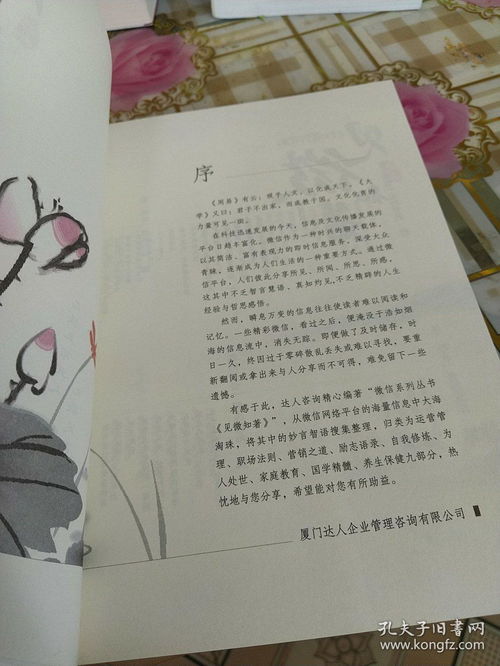 序
《周易》有云：观乎人文，以化成天下。《大
学》又曰：君子不出家，而成教于国。文化化育的
力量可见一斑。
在科技迅速发展的今天，信息及文化传播发展的
平台日趋丰富化。微信作为一种时兴的聊天载体，
以其简洁、富有表现力的即时信息服务，深受大众
青睐，逐渐成为人们生活的一种重要方式。通过微
信平台，人们彼此分享所见、所闻、所思、所感，
这其中不乏智言慧语、真知灼见，不乏精辟的人生
经验与哲思感悟。
然而，瞬息万变的信息往往使读者难以阅读和
记忆。一些精彩微信，看过之后，便淹没于浩如烟
海的信息流中，消失无踪。即便做了及时储存，时
日一久，终因过于零碎散乱丢失或难以寻找，要重
新翻阅或拿出来与人分享而不可得，难免留下一些
遗憾。
有感于此，达人咨询精心编著“微信系列丛书
《见微知著》”，从微信网络平台的海量信息中大海
淘珠，将其中的妙言智语搜集整理，归类为运营管
理、职场法则、营销之道、励志语录、自我修炼、为
人处世、家庭教育、国学精髓、养生保健九部分，热
忱地与您分享，希望能对您有所助益。
厦门达人企业管理咨询有限公司
孔夫子旧书网
www.kongfz.com